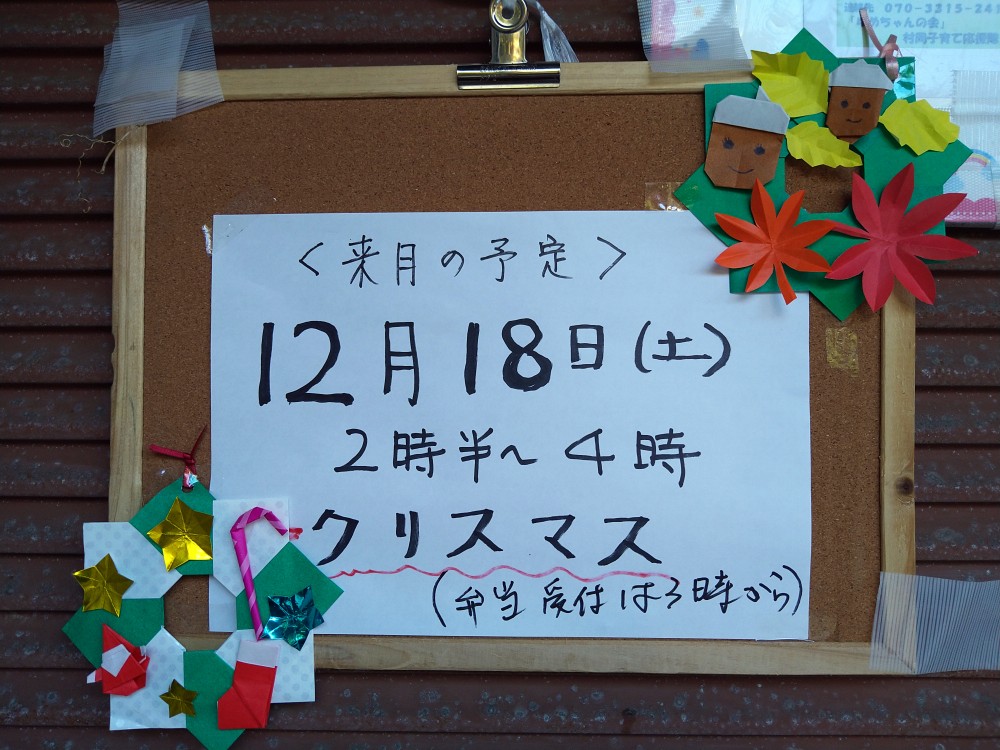 連絡先 070-3315-248
「ゆめちゃんの会」
村岡子育て応援隊
＜来月の予定＞
12月18日(土)
2時半～4時
クリスマス
(弁当受付は3時から)